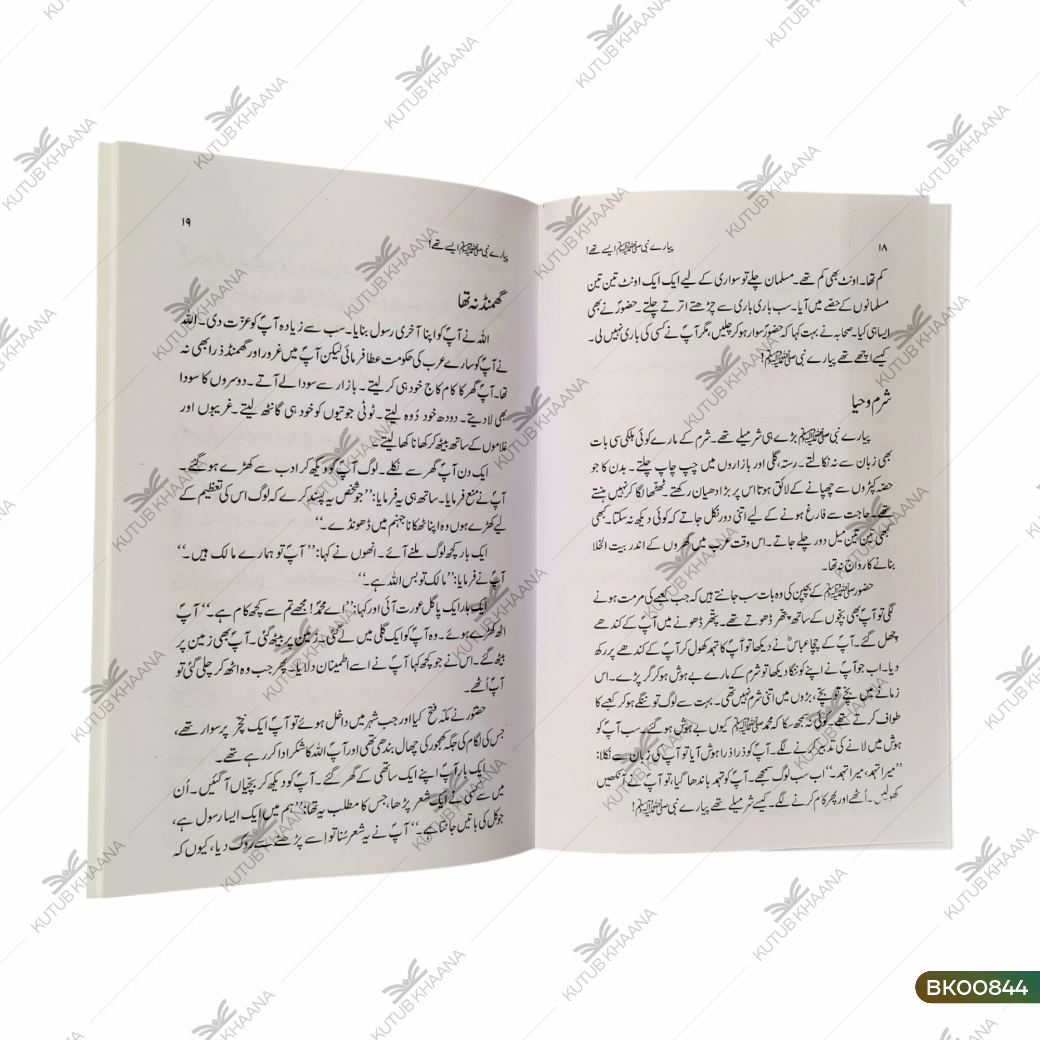 ۱۸
پیارے نبی ﷺ ایسے تھے!
کم تھا۔ اونٹ بھی کم تھے۔ مسلمان چلے تو سواری کے لیے ایک ایک اونٹ تین تین
مسلمانوں کے حصّے میں آیا۔ سب باری باری سے چڑھتے اترتے چلتے۔ حضورؐ نے بھی
ایسا ہی کیا۔ صحابہ نے بہت کہا کہ حضورؐ سوار ہو کر چلیں، مگر آپؐ نے کسی کی باری نہیں لی۔
کیسے اچھے تھے پیارے نبی ﷺ!
شرم و حیا
پیارے نبی ﷺ بڑے ہی شرمیلے تھے۔ شرم کے مارے کوئی ہلکی سی بات
بھی زبان سے نہ نکالتے۔ رستہ، گلی اور بازاروں میں چپ چاپ چلتے۔ بدن کا جو
حصّہ کپڑوں سے چھپانے کے لائق ہوتا اس پر بڑا دھیان رکھتے۔ ٹھٹھا لگا کر نہیں ہنستے
تھے۔ حاجت سے فارغ ہونے کے لیے اتنی دور نکل جاتے کہ کوئی دیکھ نہ سکتا۔ کبھی
کبھی تین تین میل دور چلے جاتے۔ اس وقت عرب میں گھروں کے اندر بیت الخلا
بنانے کا رواج نہ تھا۔
حضور ﷺ کے بچپن کی وہ بات سب جانتے ہیں کہ جب کعبے کی مرمت ہونے
لگی تو آپؐ بھی بچّوں کے ساتھ پتھر ڈھوتے تھے۔ پتھر ڈھونے میں آپؐ کے کندھے
چھل گئے۔ آپؐ کے چچا عباسؓ نے دیکھا تو آپؐ کا تہمد کھول کر آپؐ کے کندھے پر رکھ
دیا۔ اب جو آپؐ نے اپنے کو ننگا دیکھا تو شرم کے مارے بے ہوش ہو کر گر پڑے۔ اس
زمانے میں بچے تو بچے، بڑوں میں اتنی شرم نہیں تھی۔ بہت سے لوگ تو ننگے ہو کر کعبے کا
طواف کرتے تھے۔ کوئی نہ سمجھ سکا کہ محمد ﷺ کیوں بے ہوش ہو گئے۔ سب آپؐ کو
ہوش میں لانے کی تدبیر کرنے لگے۔ آپؐ کو ذرا ذرا ہوش آیا تو آپؐ کی زبان سے نکلا:
’’میرا تہمد، میرا تہمد۔‘‘ اب سب لوگ سمجھے۔ آپؐ کو تہمد باندھا گیا، تو آپؐ نے آنکھیں
کھولیں۔ اُٹھے اور پھر کام کرنے لگے۔ کیسے شرمیلے تھے پیارے نبی ﷺ!
۱۹
پیارے نبی ﷺ ایسے تھے!
گھمنڈ نہ تھا
اللہ نے آپؐ کو اپنا آخری رسول بنایا۔ سب سے زیادہ آپؐ کو عزّت دی۔ اللہ
نے آپؐ کو سارے عرب کی حکومت عطا فرمائی لیکن آپؐ میں غرور اور گھمنڈ ذرا بھی نہ
تھا۔ آپؐ گھر کا کام کاج خود ہی کر لیتے۔ بازار سے سودا لے آتے۔ دوسروں کا سودا
بھی لا دیتے۔ دودھ خود دُوہ لیتے۔ ٹوٹی جوتیوں کو خود ہی گانٹھ لیتے۔ غریبوں اور
غلاموں کے ساتھ بیٹھ کر کھانا کھا لیتے۔
ایک دن آپؐ گھر سے نکلے۔ لوگ آپؐ کو دیکھ کر ادب سے کھڑے ہو گئے۔
آپؐ نے منع فرمایا۔ ساتھ ہی یہ فرمایا: ’’جو شخص یہ پسند کرے کہ لوگ اس کی تعظیم کے
لیے کھڑے ہوں وہ اپنا ٹھکانا جہنم میں ڈھونڈے۔‘‘
ایک بار کچھ لوگ ملنے آئے۔ انھوں نے کہا: ’’آپؐ تو ہمارے مالک ہیں۔‘‘
آپؐ نے فرمایا: ’’مالک تو بس اللہ ہے۔‘‘
ایک بار ایک پاگل عورت آئی اور کہا: ’’اے محمدؐ! مجھے تم سے کچھ کام ہے۔‘‘ آپؐ
اٹھ کھڑے ہوئے۔ وہ آپؐ کو ایک گلی میں لے گئی۔ زمین پر بیٹھ گئی۔ آپؐ بھی زمین پر
بیٹھ گئے۔ اس نے جو کچھ کہا آپؐ نے اسے اطمینان دلایا۔ پھر جب وہ اٹھ کر چلی گئی تو
آپؐ اُٹھے۔
حضورؐ نے مکہ فتح کیا اور جب شہر میں داخل ہوئے تو آپؐ ایک خچر پر سوار تھے،
جس کی لگام کی جگہ کھجور کی چھال بندھی تھی اور آپؐ اللہ کا شکر ادا کر رہے تھے۔
ایک بار آپؐ اپنے ایک ساتھی کے گھر گئے۔ آپؐ کو دیکھ کر بچیاں آ گئیں۔ اُن
میں سے کسی نے ایک شعر پڑھا، جس کا مطلب یہ تھا: ’’ہم میں ایک ایسا رسول ہے،
جو کل کی باتیں جانتا ہے۔‘‘ آپؐ نے یہ شعر سُنا تو اسے پڑھنے سے روک دیا، کیوں کہ
KUTUB KHAANA
BK00844